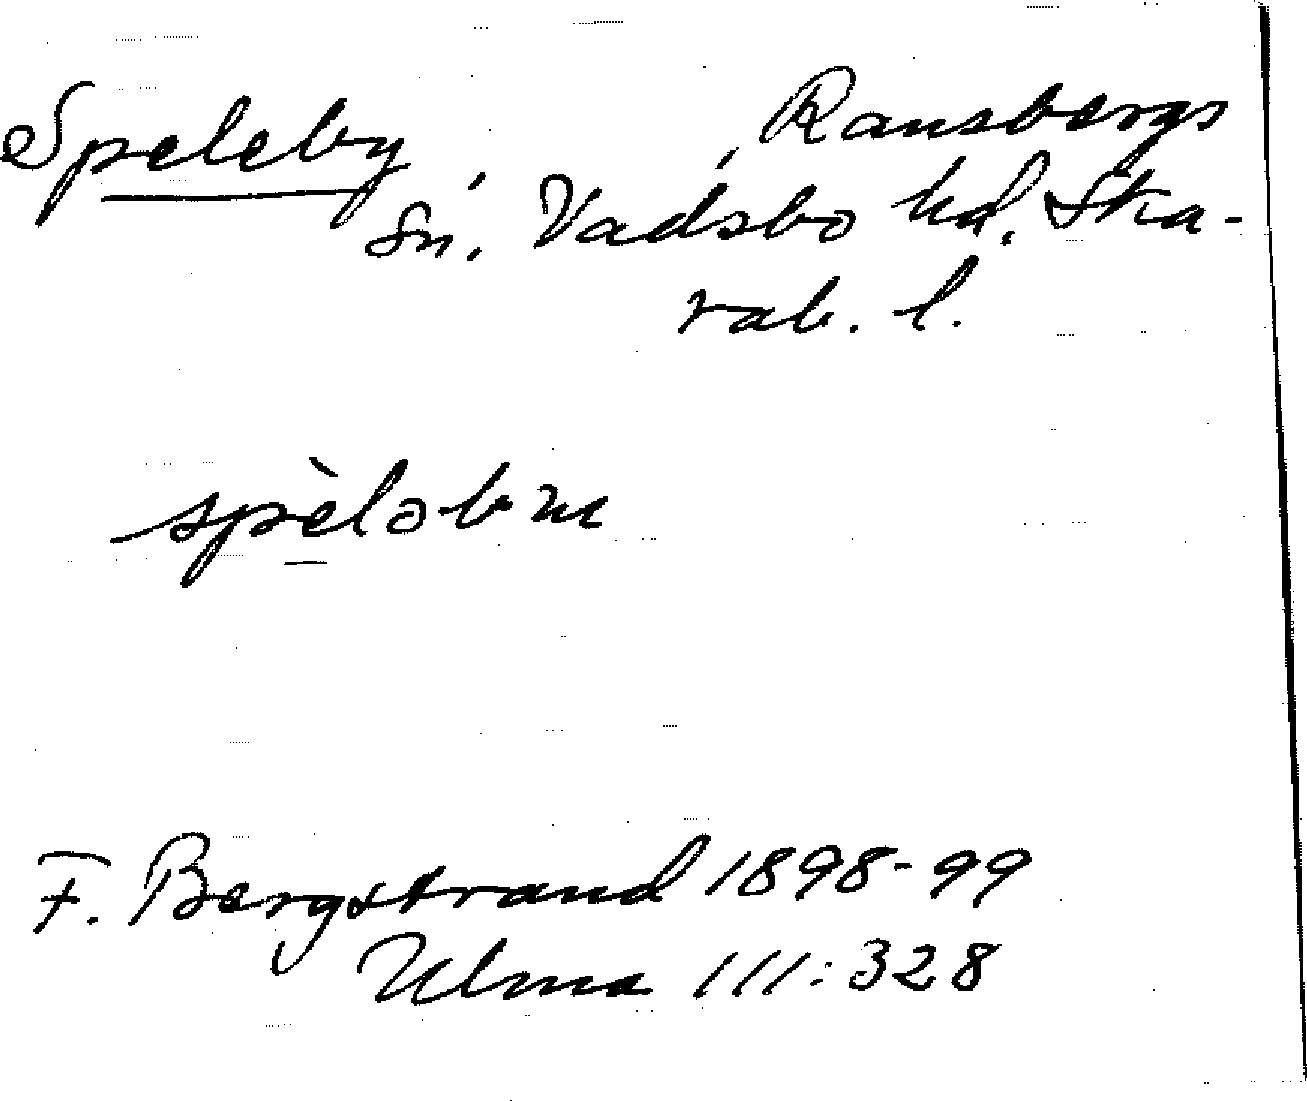 Speleby, Ransbergs
sn, Vadsbo hd, Ska-
rab. l.
F. Bergstrand 1898-99
Ulma 111:328